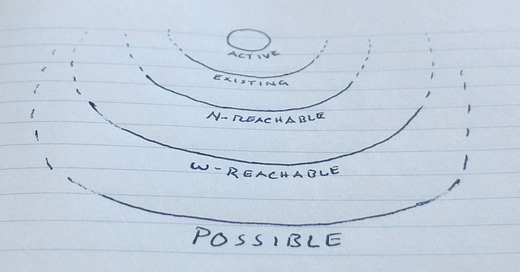 ACTIVE
EXISTING
N-REACHABLE
ω-REACHABLE
POSSIBLE